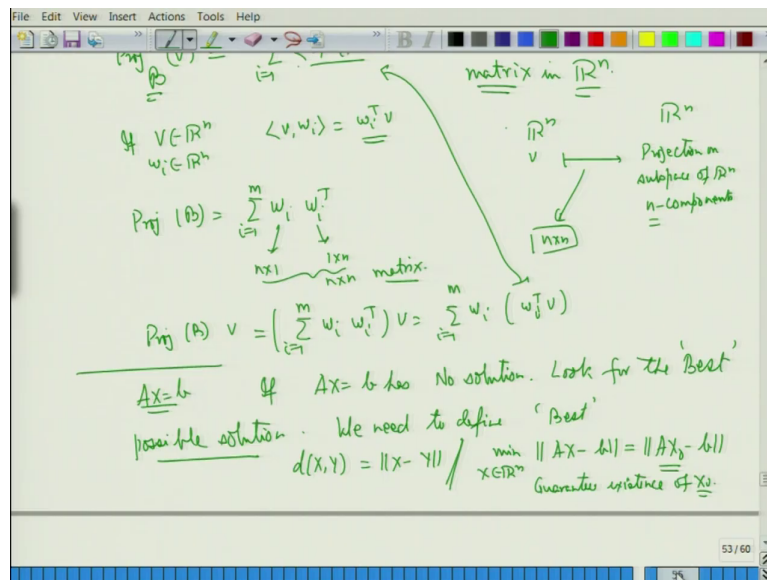 File Edit View Insert Actions Tools Help
Proj (V) = Σ i=1
B
matrix in ℝⁿ.
If V∈ℝⁿ ⟨v,wᵢ⟩ = wᵢᵀ v
wᵢ∈ℝⁿ
ℝⁿ ℝⁿ
v ⟼ Projection on
subspace of ℝⁿ
n-components
=
n×n
Proj (B) = Σ i=1 m wᵢ wᵢᵀ
n×1 1×n
n×n matrix.
Proj (B) v = (Σ i=1 m wᵢ wᵢᵀ) v = Σ i=1 m wᵢ (wᵢᵀ v)
AX=b If AX=b has No solution. Look for the 'Best'
possible solution. We need to define 'Best'
d(X,Y) = ||X-Y|| / min X∈ℝⁿ ||AX-b|| = ||AX₀-b||
Guarantee existence of X₀.
53 / 60
96